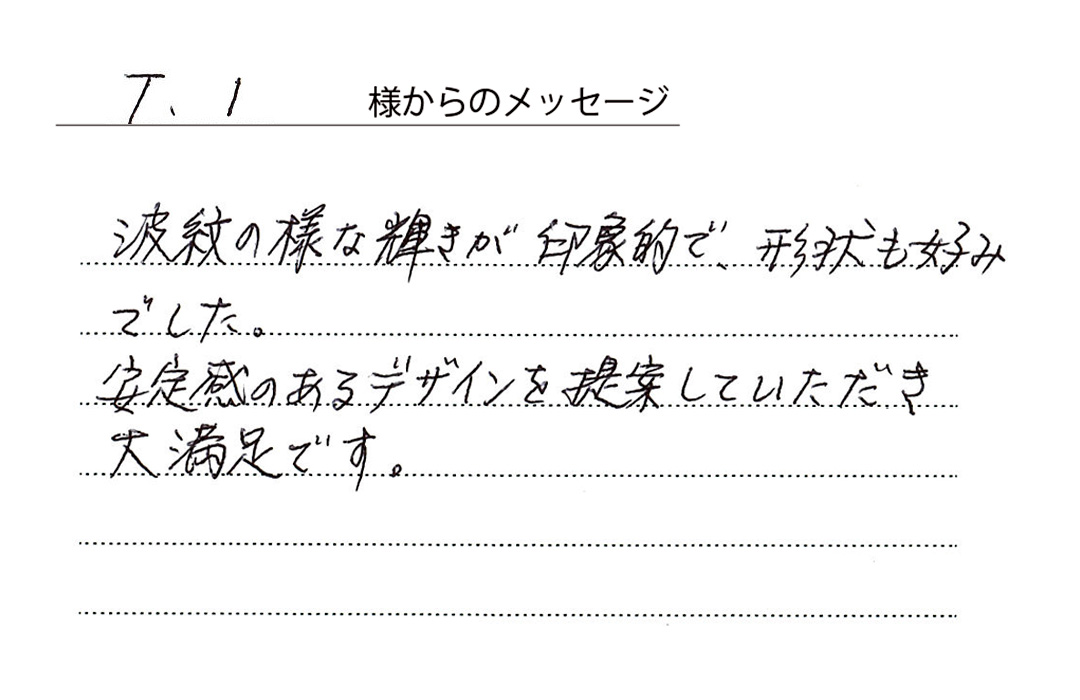 T、I 様からのメッセージ
波紋の様な輝きが印象的で、形状も好み
でした。
安定感のあるデザインを提案していただき
大満足です。